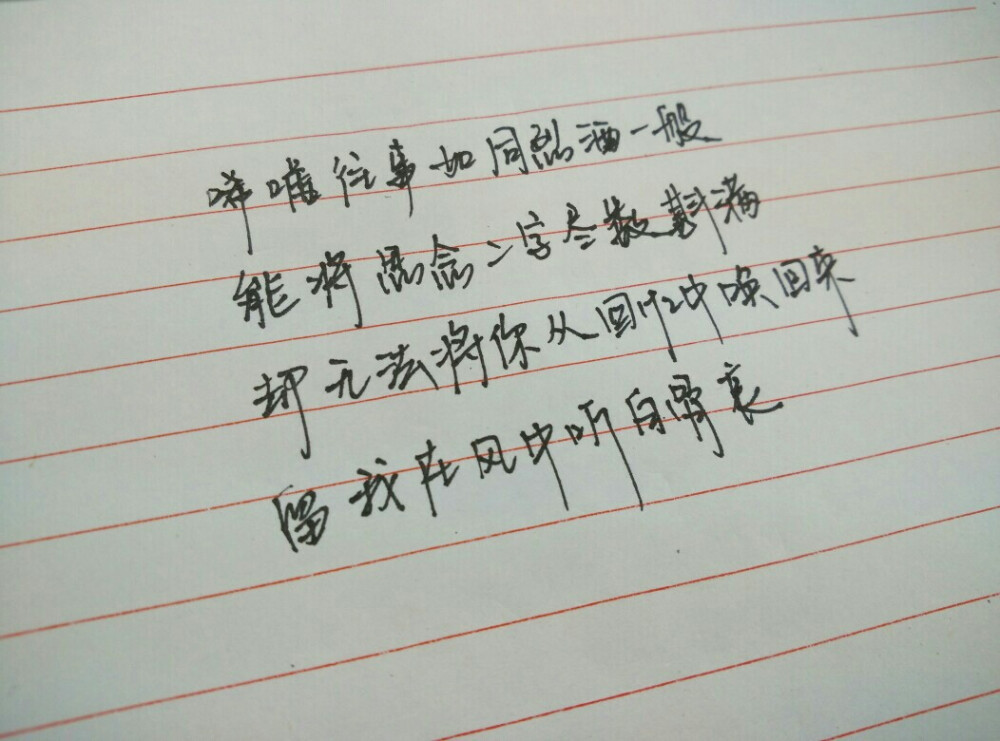 哗嚾往事如同烈酒一般
能将思念二字尽数斟满
却无法将你从回忆中唤回来
留我在风中听白骨哀